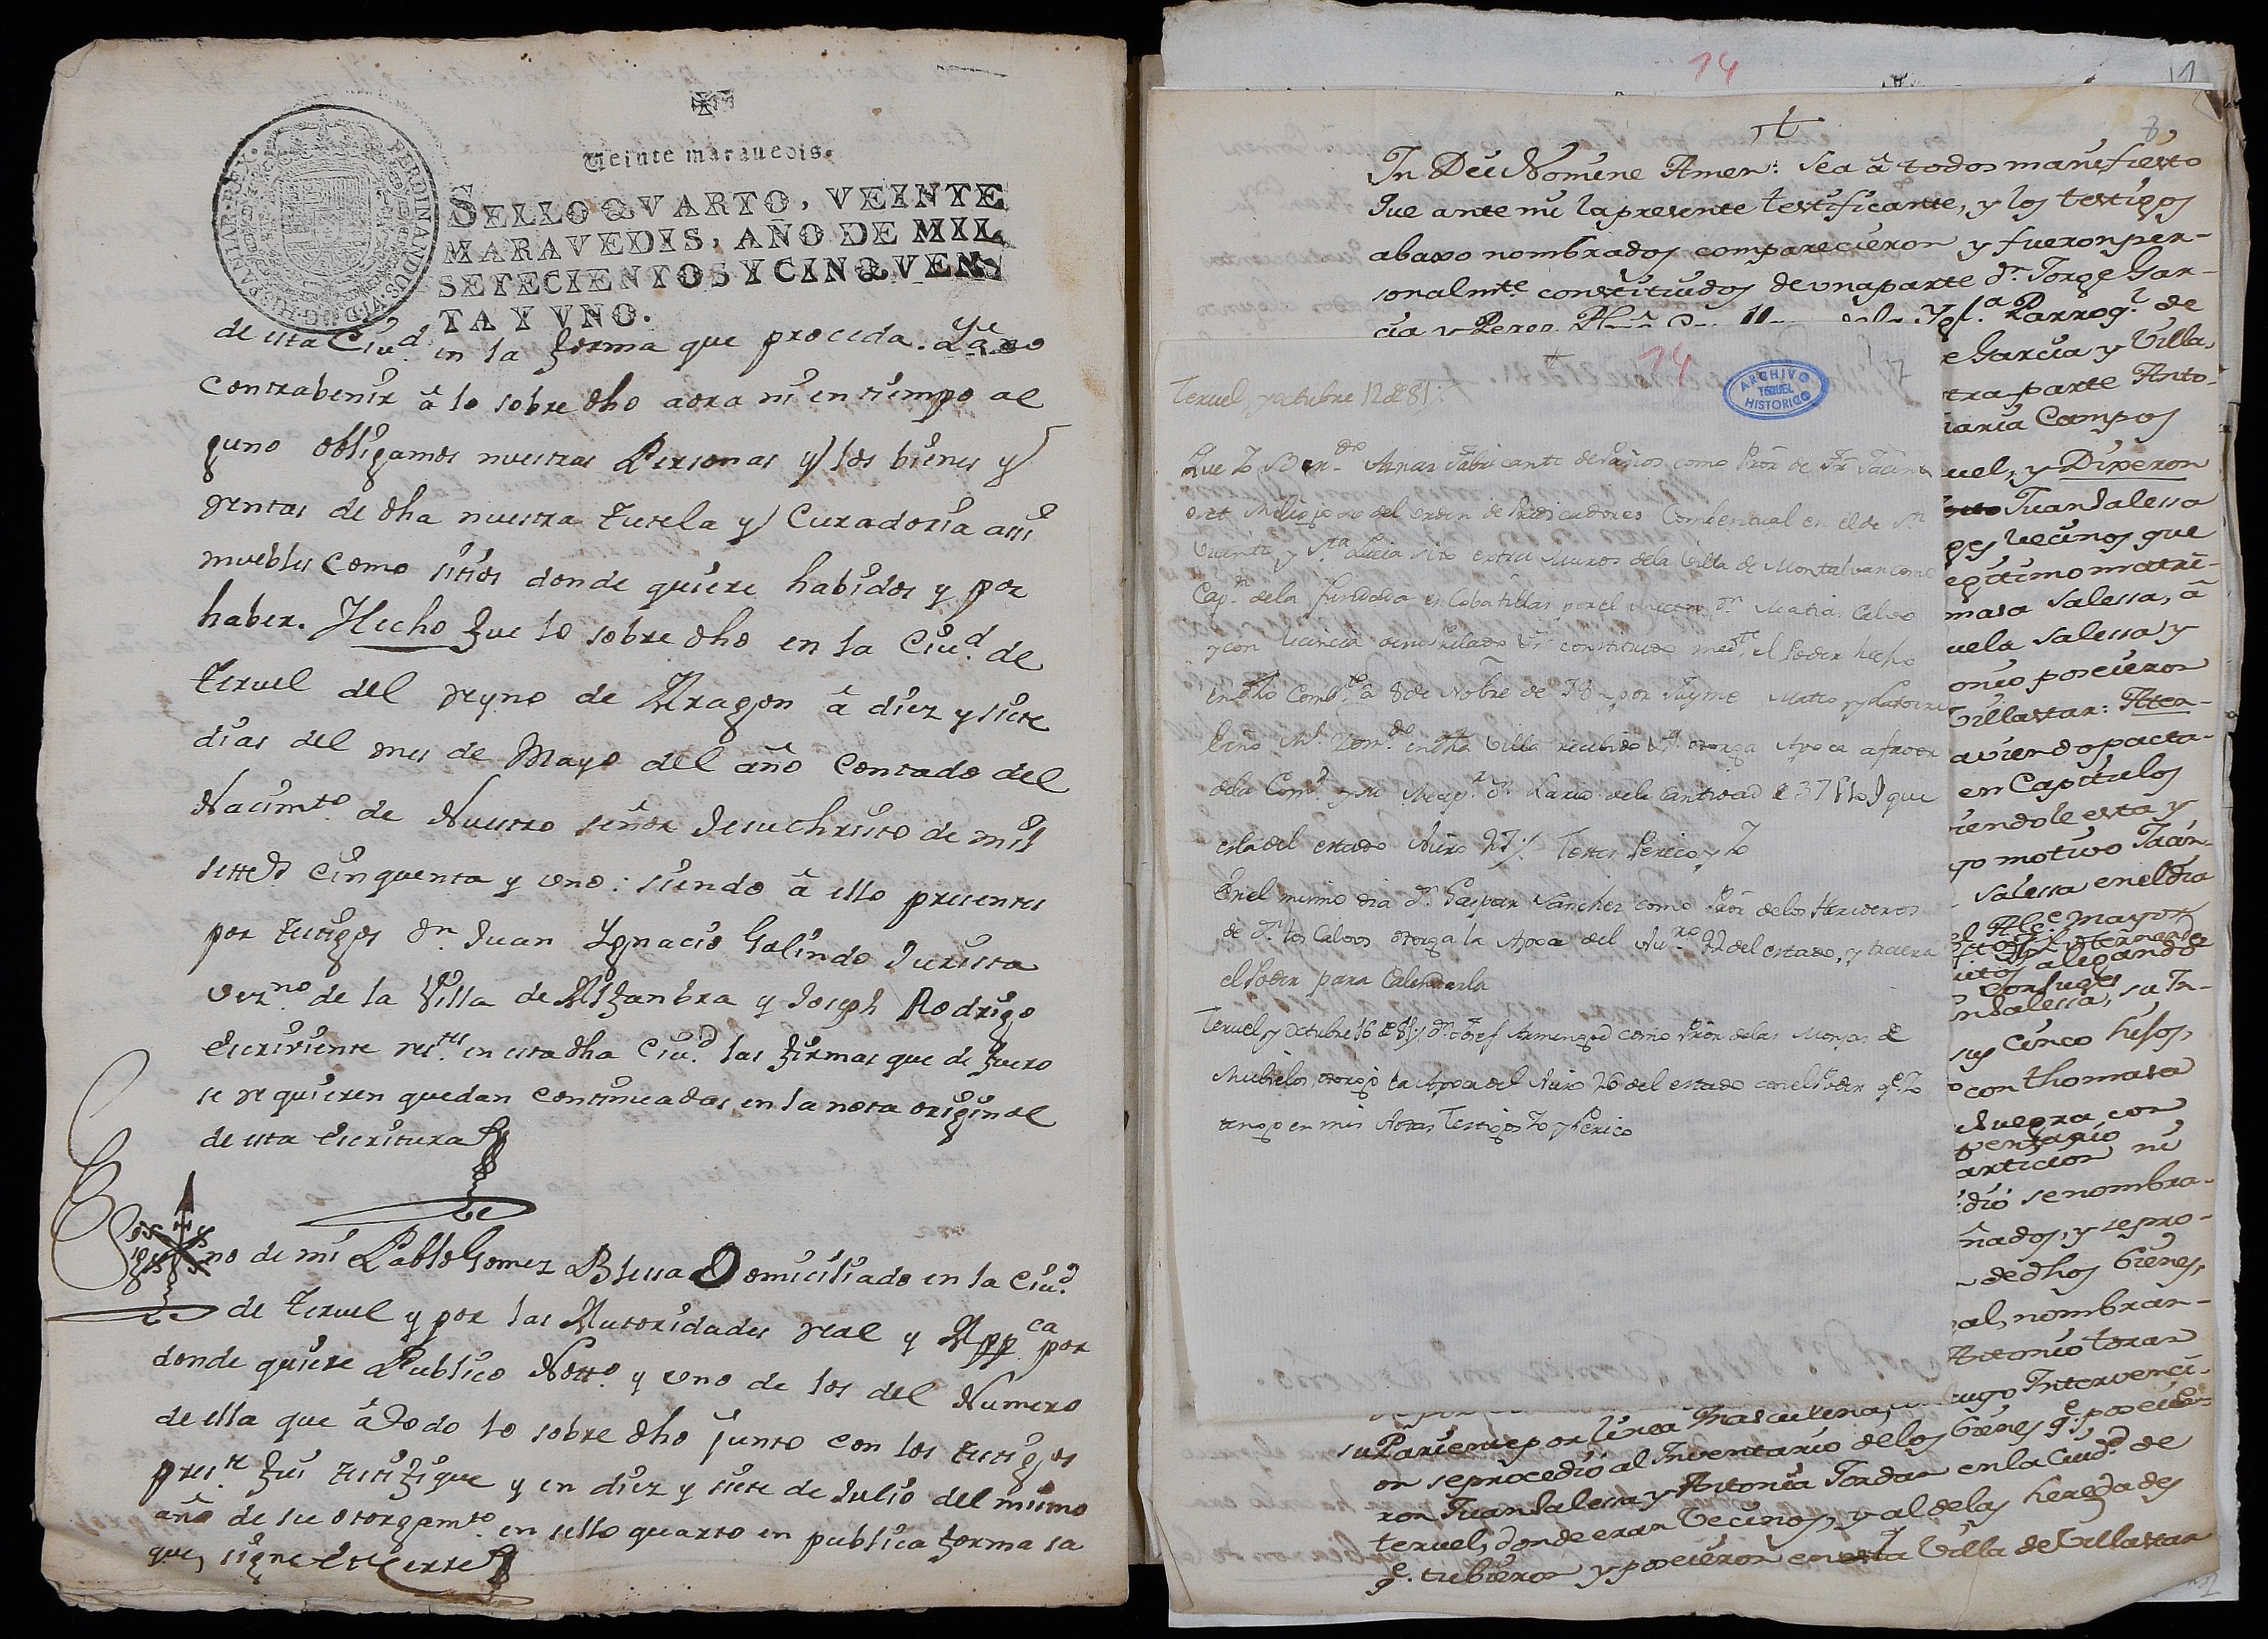 Veinte maravedis.
SELLO QVARTO, VEINTE
MARAVEDIS, AÑO DE MIL
SETECIENTOS Y CINQVEN-
TA Y VNO.
FERDINANDUS. VI. D. G. HISPANIAR. REX.
de esta Ciud. en la forma que proceda. Y a no
contrabenir â lo sobre dho aora ni en tiempo al
guno obligamos nuestras Personas y los bienes y
rentas de dha nuestra tutela y Curadoria assi
muebles como sitios donde quiere habidos y por
haber. Hecho fue lo sobre dho en la Ciud. de
teruel del reyno de Aragon â diez y siete
dias del mes de Mayo del año Contado del
Nacimto. de Nuestro señor Jesuchristo de mil
setteds. cinquenta y uno: siendo â ello presentes
por testigos Dn. Juan Ygnacio Galindo Jurista
vezno. de la Villa de Alfambra y Joseph Rodrigo
Escriviente restes. en esta dha Ciud. las firmas que de fuero
se requieren quedan continuadas en la nota original
de esta escritura
Sig no de mi Pablo Gomez Blessa Domiciliado en la Ciud.
de teruel y por las Autoridades real y Appca. por
donde quiere Publico Notto. y uno de los del Numero
de ella que â todo lo sobre dho junto con los testigos
preste. fui testifique y en diez y siete de Julio del mismo
año de su otorgamto. en sello quarto en publica forma sa
que, signe Et Cerre
14
In Dei Nomine Amen: sea â todos manifiesto
Que ante mi la presente testificante, y los testigos
abaxo nombrados comparecieron y fueron per-
sonalmte. constituidos de una parte dn. Jorge Gar-
cia y Perez
Yglª. Parrogl. de
e Garcia y Villa,
tra parte Anto-
aria Campos
uel, y Dixeron
Juan Salessa
ges vecinos que
egitimo matri-
masa Salessa, â
uela Salessa y
onio poseieron
Villastar: Aten-
aviendo pacta-
en Capitulos
iendole esta y
go motivo Juan
Salessa en el dia
el Alce. mayor
alegando
Conjuges
n Salessa, su In-
sus cinco hijos,
con thomasa
suegra con
ventario
articion ni
dio se nombra-
ñados, y repro-
de dhos bienes,
al, nombran-
Antonio toran
cuyo Intervenci-
su Pariente por linea Masculina,
on se procedió al Inventario de los bienes qe. poseie-
ron Juan Salessa y Antonia Jordan en la Ciud. de
teruel, donde eran vecinos, y al de las heredades
qe. tubieron y poseieron en esta Villa de Villastar
14
7
ARCHIVO
TERUEL
HISTORICO
Teruel, y octubre 12 de 81:
Que Yo Berndo. Aznar fabricante de Paños como Pror de Fr. Jacin
Religioso del orden de Predicadores Combentual en el de Sn.
Vicente, y Sta. Lucia sito extra Muros de la Villa de Montalvan como
Capn. de la fundada en Cobatillas por el Rector Dn. Matias Calvo
y con licencia de mi Prelado constituido medte. el Poder hecho
en dho Combto. â 8 de Nobre de 78 por Jayme Mateo y Latorre
Esño Rl. Domdo. en dha Villa recibido otorga Apoca a favor
dela Comd. y su Dn. Lario dela Cantidad de 37 que
es la del estado Nuro 27. Testes Perico, y Yo
En el mismo dia Dn. Gaspar Sanchez como Pror delos Herederos
de Dn. los Calvos otorga la Apoca del Nuro. 22 del estado, y traera
el Poder para Calendarla
Teruel y Octubre 16 de 81: Dn. Josef Armengod como Pror delas Monjas de
Rubielos, otorgó la Apoca del Nuro 26 del estado con el Poder qe. Yo
tengo en mis Notas Testigos Yo y Perico